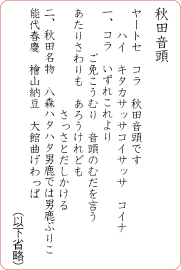 秋田音頭
ヤートセ　コラ　秋田音頭です
ハイ　キタカサッサコイサッサ　コイナ
一、コラ　いずれこれより
ご免こうむり　音頭のむだを言う
あたりさわりも　あろうけれども
さっさとだしかける
二、秋田名物　八森ハタハタ男鹿では男鹿ぶりこ
能代春慶　檜山納豆　大館曲げわっぱ
（以下省略）